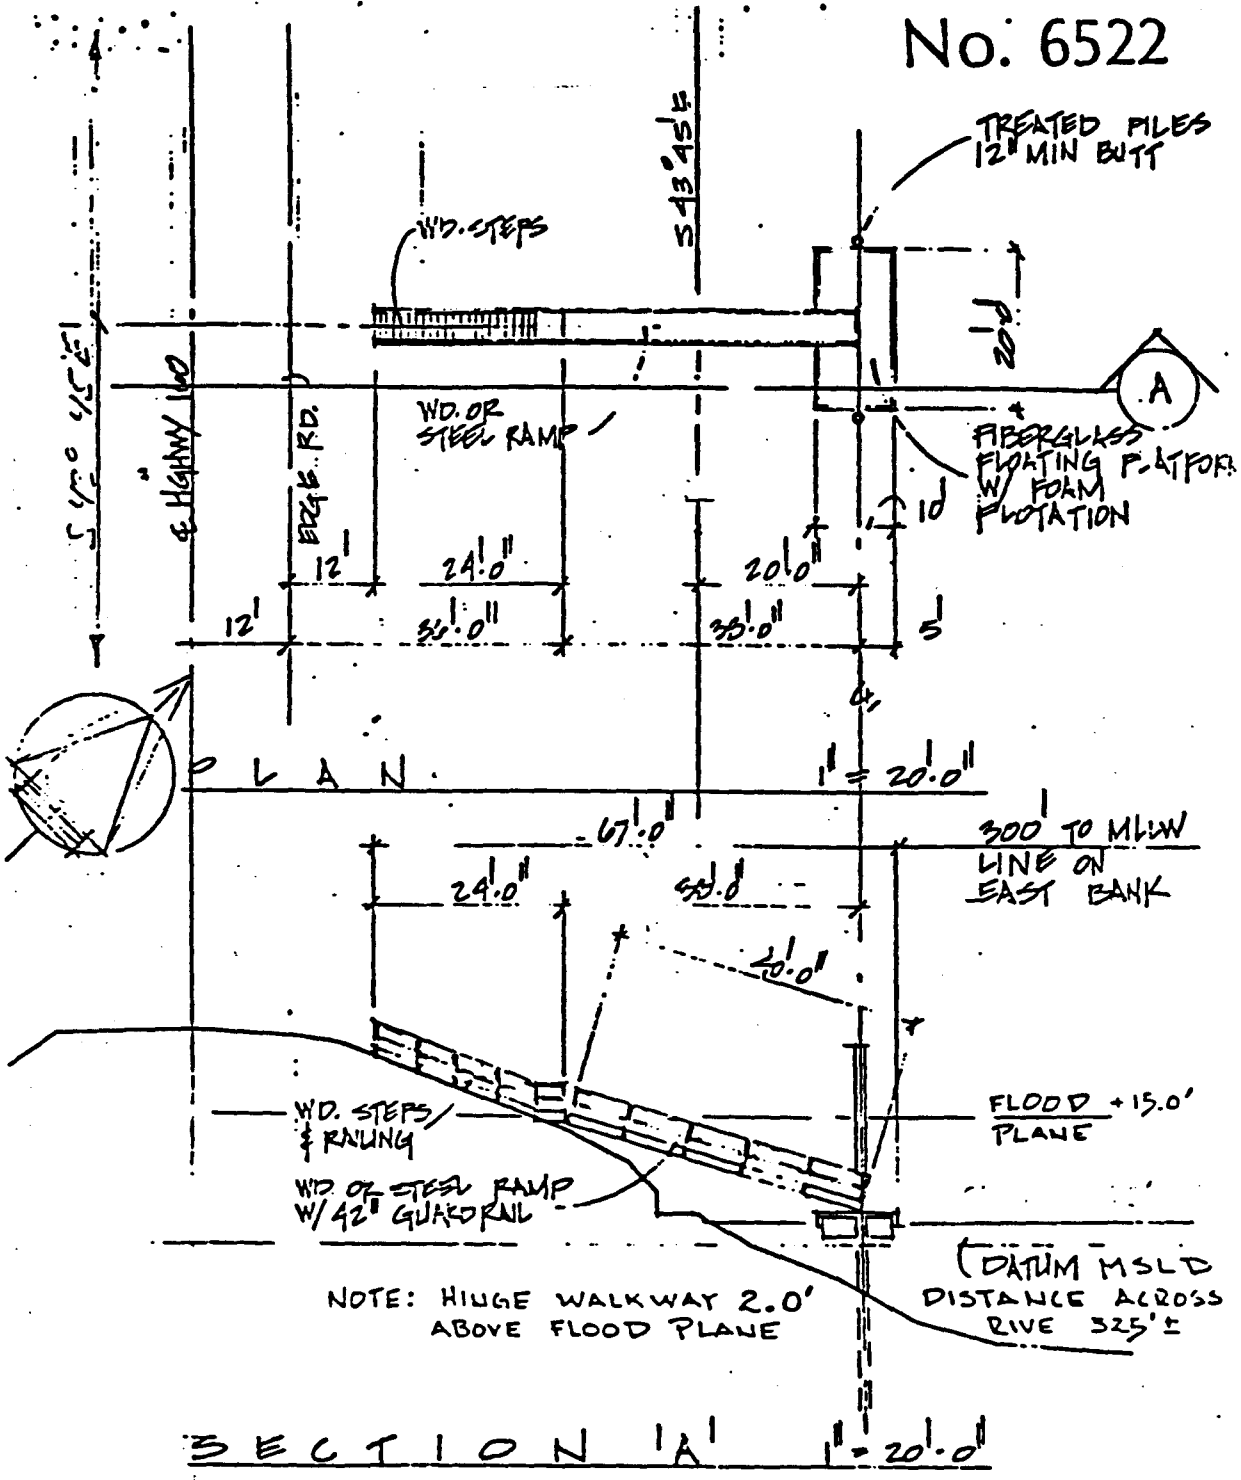 No. 6522
TREATED PILES
12" MIN BUTT
S 43° 45' E
WD. STEPS
20'-0"
℄ HGHWY 160
EDGE RD.
WD. OR
STEEL RAMP
A
FIBERGLASS
FLOATING PLATFOR
W/ FOAM
FLOTATION
10'
12'
24'-0"
20'-0"
12'
38'-0"
5'
PLAN
1" = 20'-0"
67'-0"
300' TO MLLW
LINE ON
EAST BANK
24'-0"
38'-0"
40'-0"
WD. STEPS
& RAILING
FLOOD +15.0'
PLANE
WD. OR STEEL RAMP
W/ 42" GUARDRAIL
DATUM MSLD
NOTE: HINGE WALKWAY 2.0'
ABOVE FLOOD PLANE
DISTANCE ACROSS
RIVE 325' ±
SECTION 'A'
1" = 20'-0"